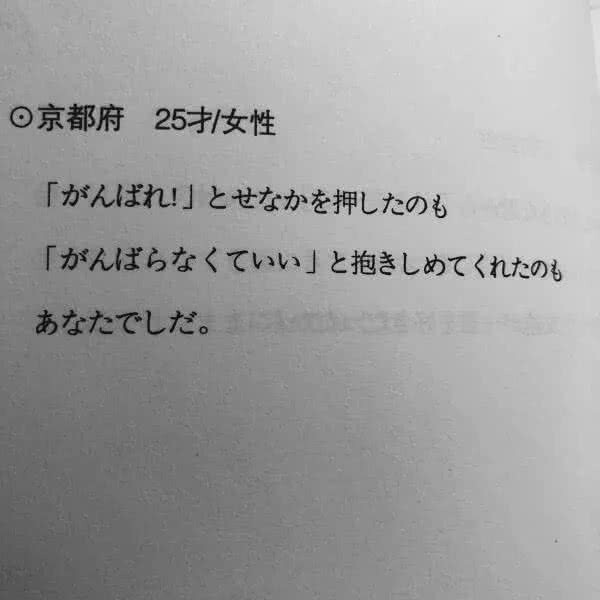 ⊙京都府 25才/女性
「がんばれ!」とせなかを押したのも
「がんばらなくていい」と抱きしめてくれたのも
あなたでしだ。